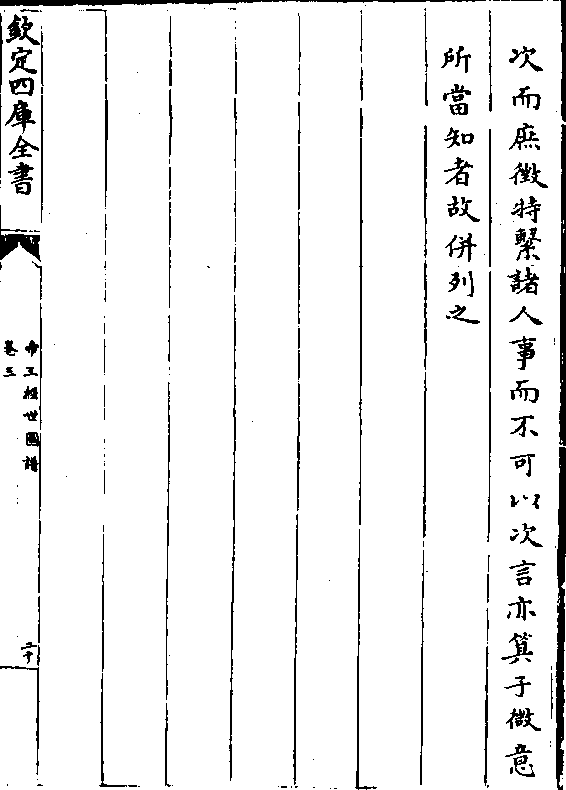 次而庶徴特繫諸人事而不可以次言亦箕子微意
所當知者故併列之
欽定四庫全書
帝王經世圖譜
卷三
二十